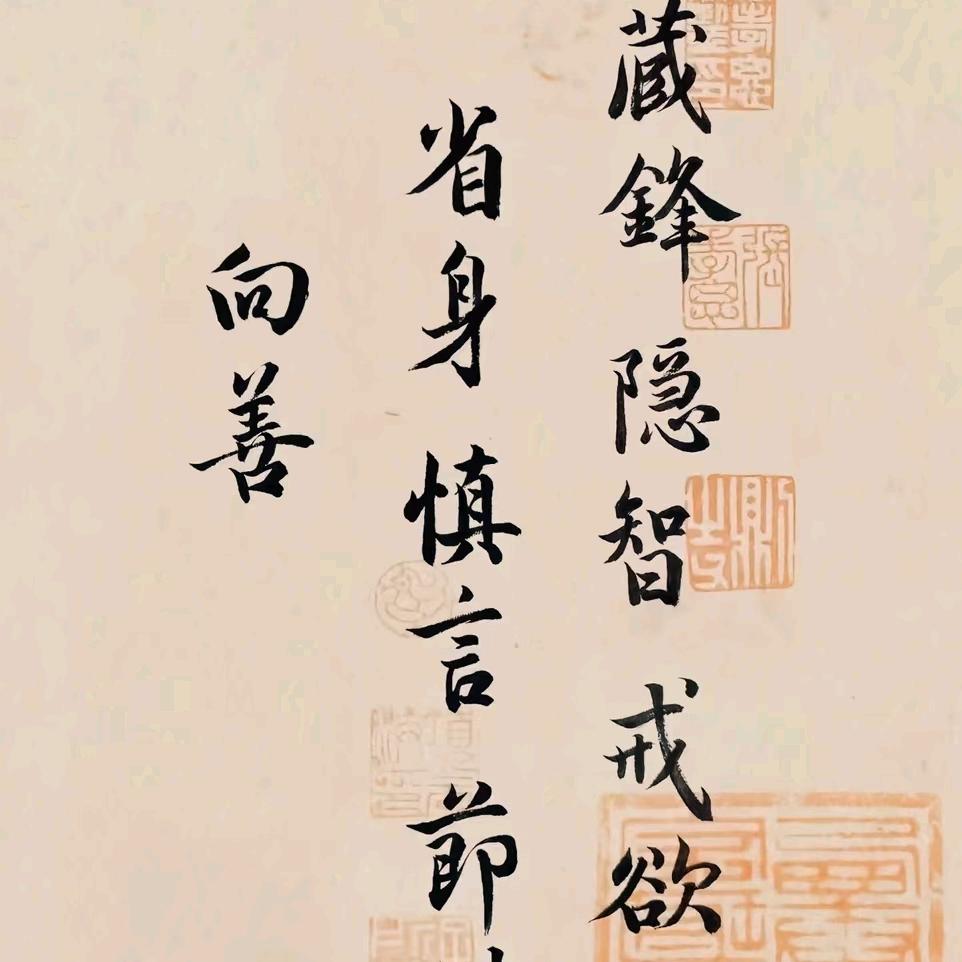 藏鋒 隐智 戒欲
省身 慎言 節
向善